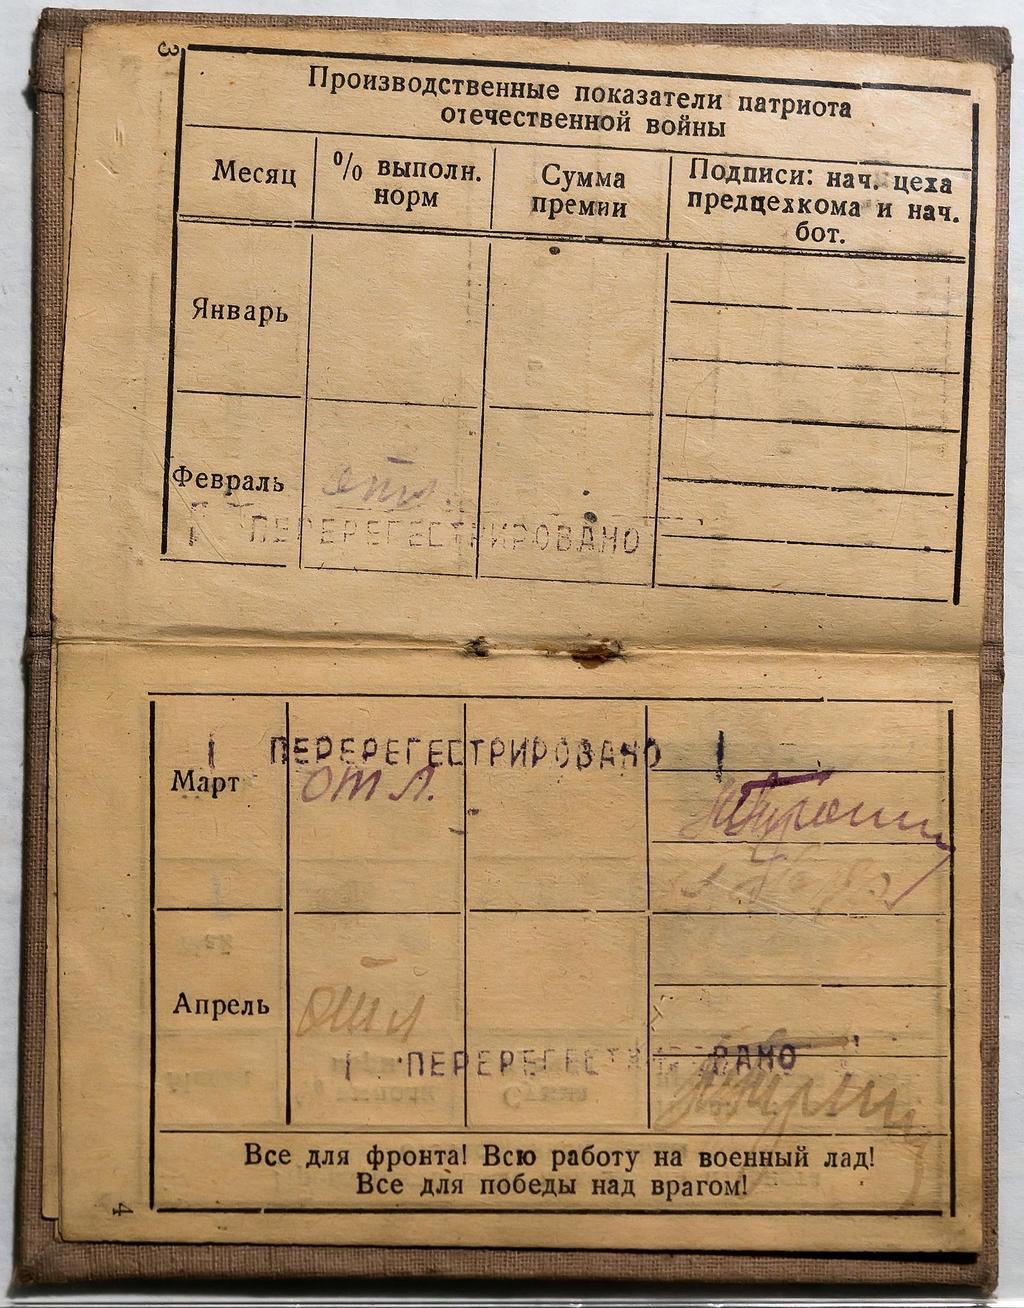 3
Производственные показатели патриота
отечественной войны
Месяц
% выполн.
норм
Сумма
премии
Подписи: нач. цеха
предцехкома и нач.
бот.
Январь
Февраль
отл.
ПЕРЕРЕГЕСТРИРОВАНО
ПЕРЕРЕГЕСТРИРОВАНО
Март
отл.
Апрель
отл
ПЕРЕРЕГЕСТРИРОВАНО
Все для фронта! Всю работу на военный лад!
Все для победы над врагом!
4